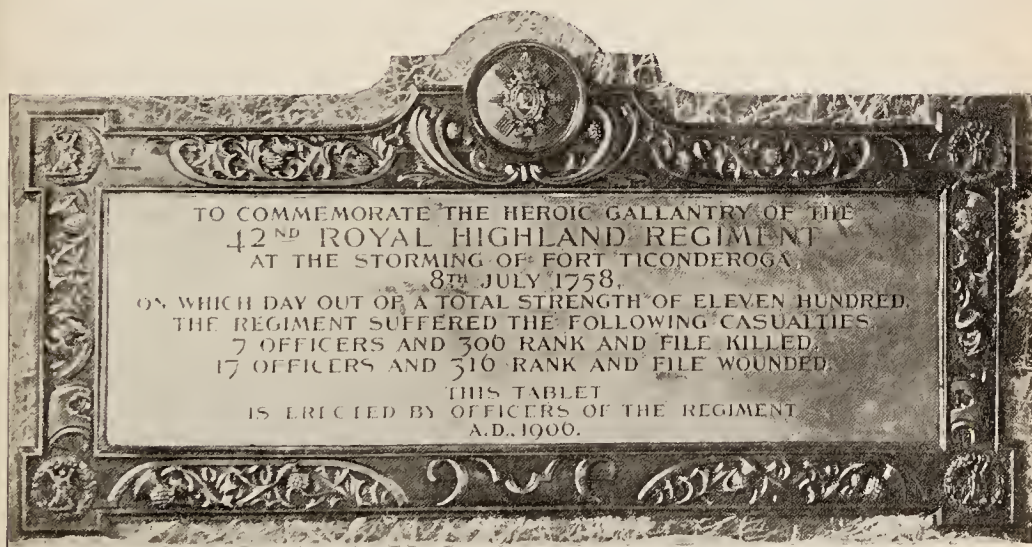 TO COMMEMORATE THE HEROIC GALLANTRY OF THE
42ND ROYAL HIGHLAND REGIMENT
AT THE STORMING OF FORT TICONDEROGA,
8TH JULY 1758,
ON WHICH DAY OUT OF A TOTAL STRENGTH OF ELEVEN HUNDRED,
THE REGIMENT SUFFERED THE FOLLOWING CASUALTIES
7 OFFICERS AND 306 RANK AND FILE KILLED,
17 OFFICERS AND 316 RANK AND FILE WOUNDED.
THIS TABLET
IS ERECTED BY OFFICERS OF THE REGIMENT
A.D., 1906.